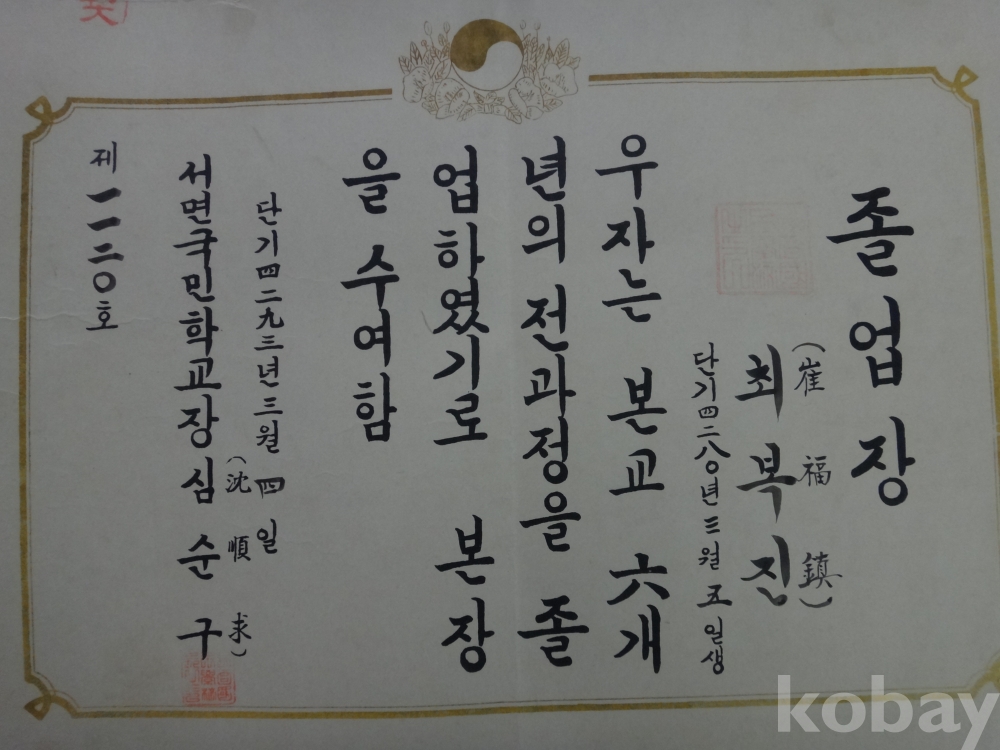 졸업장
(崔福鎮)
최복진
단기四二八〇년三월五일생
우자는 본교 六개
년의 전과정을 졸
업하였기로 본장
을 수여함
단기四二九三년三월四일
서면국민학교장 심순구
(沈順求)
제一一二〇호
kobay